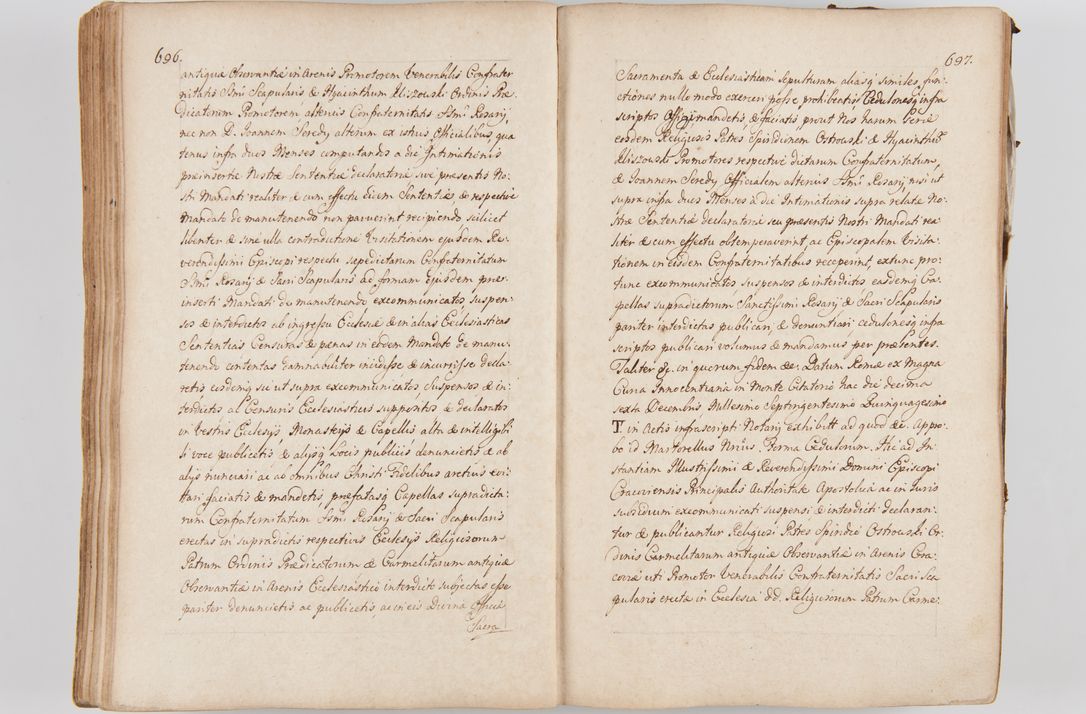 696.
antiquæ Observantiæ in Arenis Promotorem Venerabilis Confrater
nitatis Ssmi Scapularis & Hyacinthum Aliszouski Ordinis Præ
dicatorum Promotorem alterius Confraternitatis Ssmi Rosarij,
nec non D. Joannem Seredy alterum ex istius Officialibus, qua
tenus infra duos Menses computandos a die Intimationis
præinsertæ Nostræ Sententiæ declaratoriæ sive præsentis No-
stri Mandati realiter & cum effectu eidem Sententiæ, ac respective
Mandato de manutenendo non paruerint recipiendo scilicet
libenter & sine ulla contradictione Visitationem ejusdem Re-
verendissimi Episcopi respectu sepedictarum Confraternitatum
Ssmi Rosarij & Sacri Scapularis ad formam ejusdem præ-
inserti Mandati de manutenendo excommunicatos Suspen-
sos & interdictos ab ingressu Ecclesiæ & in alias Ecclesiasticas
Sententias Censuras & pænas in eodem Mandato de manu-
tenendo contentas damnabiliter incidisse & incurrisse decla-
retis eosdemq sic ut supra excommunicatos, Suspensos & in-
terdictos ac Censuris Ecclesiasticis suppositos & declaratos
in Vestris Ecclesijs Monasterijs & Capellis alta & intelligibi
li voce publicetis & alijsq Locis publicis denuncietis & ab
alijs nunciari ac ab omnibus Christi Fidelibus arctius evi-
tari faciatis & mandetis, præfatasq Capellas supradicta-
rum Confraternitatum Ssmi Rosarij & Sacri Scapularis
erectas in supradictis respectivis Ecclesijs Religiosorum
Patrum Ordinis Prædicatorum & Carmelitarum antiquæ
Observantiæ in Arenis Ecclesiastico interdicto subjectas esse
pariter denuncietis ac publicetis, ac in eis Divina Officia
Sacra
697.
Sacramenta & Ecclesiasticam Sepulturam aliasq similes fun-
ctiones nullo modo exerceri posse prohibeatis, Cedulonesq infra
scriptos affigi mandetis & faciatis, prout Nos harum Serie
eosdem Religiosos Patres Spiridionem Ostrouski & Hyacinthum
Aliszouski Promotores respective dictarum Confraternitatum,
& Joannem Seredy Officialem alterius Ssmi Rosarij nisi ut
supra infra duos Menses a die Intimationis supra relatæ No-
stræ Sententiæ declaratoriæ seu præsentis Nostri Mandati rea
liter & cum effectu obtemperaverint, ac Episcopalem Visita-
tionem in eisdem Confraternitatibus receperint, extunc pro-
tunc excommunicatos, suspensos & interdictos easdemq Ca-
pellas supradictorum Sanctissimi Rosarij & Sacri Scapularis
pariter interdictas publicari, & denuntiari cedulonesq infra
scriptos publicari volumus & mandamus per præsentes.
Taliter &c. in quorum fidem &c. Datum Romæ ex Magna
Curia Innocentiana in Monte Citatorio hac die decima
sexta Decembris Millesimo Septingentesimo Quinquagesimo
in Actis infrascripti Notarij exhibuit ad quod &c. Appro-
bo id Martorellus Nrius. Forma Cedulorum. Hic ad In-
stantiam Illustrissimi & Reverendissimi Domini Episcopi
Cracoviensis Principalis Authoritate Apostolica ac in Juris
subsidium excommunicati suspensi & interdicti declaran-
tur & publicantur Religiosi Patres Spiridio Ostrouski Or-
dinis Carmelitarum antiquæ Observantiæ in Arenis Cra-
coviæ uti Promotor Venerabilis Confraternitatis Sacri Sca
pularis erectæ in Ecclesia dd. Religiosorum Patrum Carme-